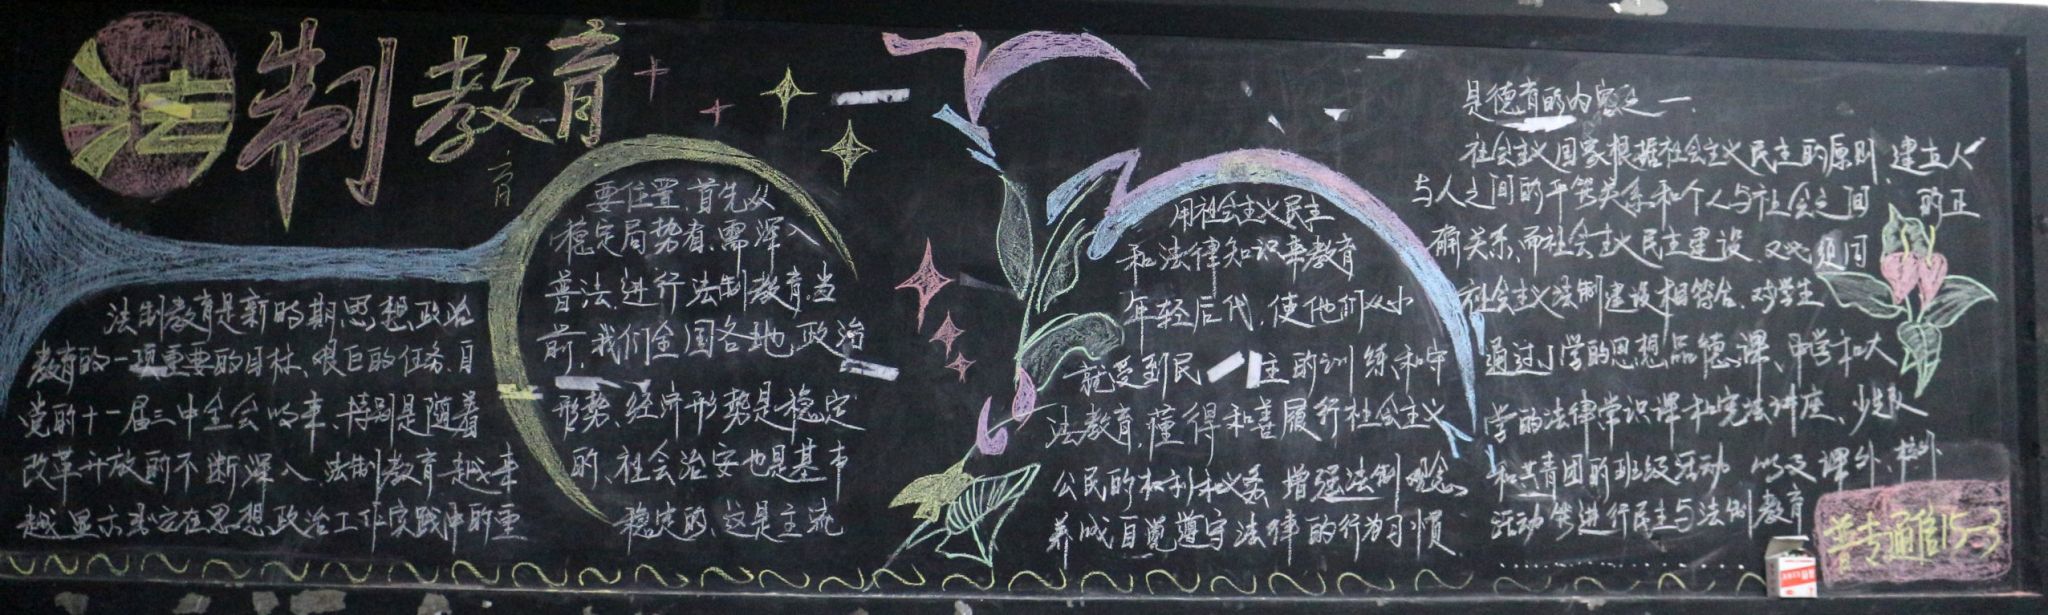 法制教育
育
法制教育是新时期思想政治
教育的一项重要的目标、艰巨的任务、自
党的十一届三中全会以来、特别是随着
改革开放的不断深入、法制教育越来
越显示其在思想政治工作实践中的重
要位置、首先从
稳定局势看、需深入
普法、进行法制教育、当
前、我们全国各地、政治
形势、经济形势是稳定
的、社会治安也是基本
稳定的、这是主流
用社会主义民主
和法律知识来教育
年轻后代、使他们从小
就受到民主的训练和守
法教育、懂得和善履行社会主义
公民的权利和义务、增强法制观念、
养成自觉遵守法律的行为习惯
是德育的内容之一、
社会主义国家根据社会主义民主的原则、建立人
与人之间的平等关系和个人与社会之间 的正
确关系、而社会主义民主建设、又必须同
社会主义法制建设相符合、对学生
通过小学的思想品德课、中学和大
学的法律常识课和宪法讲座、少先队
和共青团的班级活动 以及课外、校外
活动等进行民主与法制教育
普专通信15-3